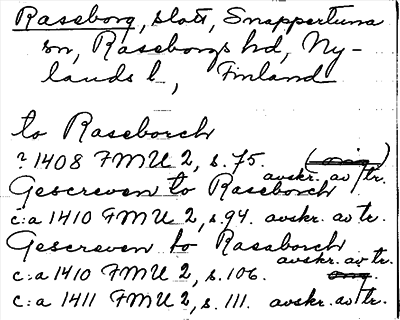 Raseborg, slott, Snappertuna
sn, Raseborgs hd, Ny-
lands l., Finland
to Raseborch
? 1408 FMU 2, s. 75. (orig)
avskr. av tr.
Gescreven to Raseborch
c:a 1410 FMU 2, s. 94. avskr. av tr.
Gescreven to Rasaborch
avskr. av tr.
c:a 1410 FMU 2, s. 106. orig.
c:a 1411 FMU 2, s. 111. avskr. av tr.